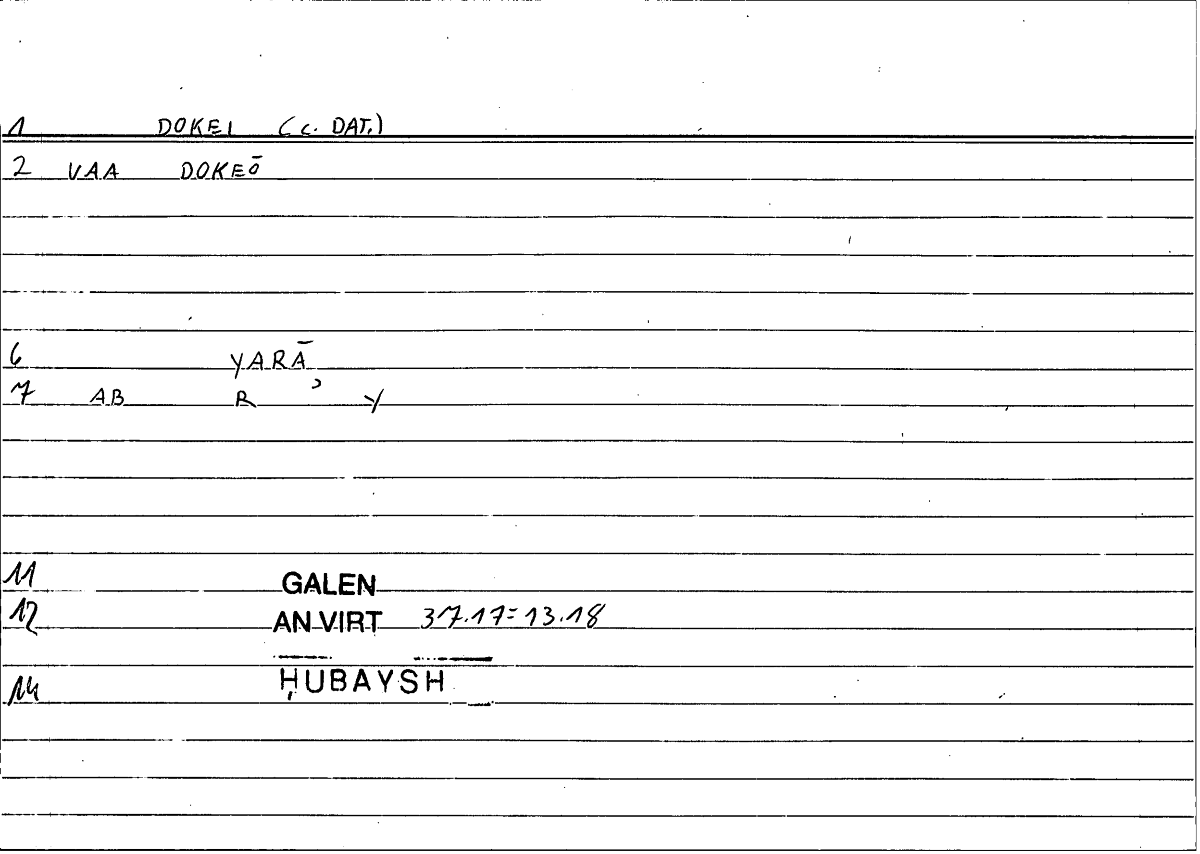 1 DOKEI (c. DAT.)
2 VAA DOKEŌ
6 YARĀ
7 AB R ʾ Y
11 GALEN
12 AN VIRT 37.17=13.18
ḤUBAYSH
14